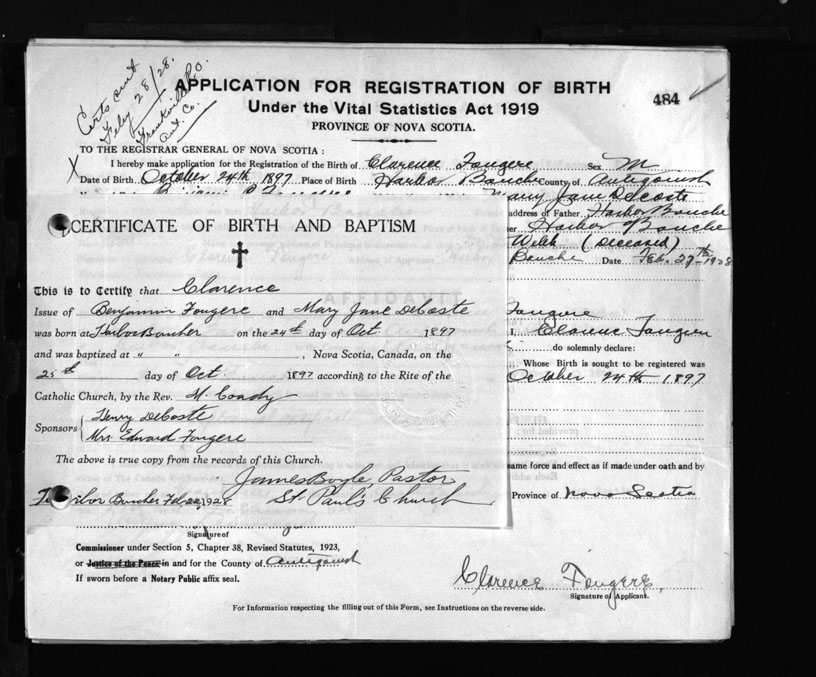 Certs sent
Feby 28/28.
Frankville P.O.
Ant. Co.
APPLICATION FOR REGISTRATION OF BIRTH
Under the Vital Statistics Act 1919
PROVINCE OF NOVA SCOTIA.
484
TO THE REGISTRAR GENERAL OF NOVA SCOTIA :
I hereby make application for the Registration of the Birth of Clarence Fougere Sex M
X Date of Birth October 24th 1897 Place of Birth Harbor Bouche County of Antigonish
Mary Jane DeCoste
address of Father Harbor Bouche
Harbor Bouche
Webb (Deceased)
Bouche Date Feb. 27th 1928
CERTIFICATE OF BIRTH AND BAPTISM
This is to Certify that Clarence
Issue of Benjamin Fougere and Mary Jane DeCoste
was born at Harbor Boucher on the 24th day of Oct 1897
and was baptized at " " , Nova Scotia, Canada, on the
25th day of Oct 1897 according to the Rite of the
Catholic Church, by the Rev. M. Coady
Sponsors { Henry DeCoste
Mrs Edward Fougere
The above is true copy from the records of this Church.
James Boyle, Pastor
Boucher Feb 1928 St. Paul's Church
AFFIDAVIT
Fougere
I, Clarence Fougere
do solemnly declare:
Whose Birth is sought to be registered was
October 24th 1897
same force and effect as if made under oath and by
Province of Nova Scotia
Signature of
Commissioner under Section 5, Chapter 38, Revised Statutes, 1923,
or Justice of the Peace in and for the County of Antigonish
If sworn before a Notary Public affix seal.
Clarence Fougere
Signature of Applicant.
For Information respecting the filling out of this Form, see Instructions on the reverse side.